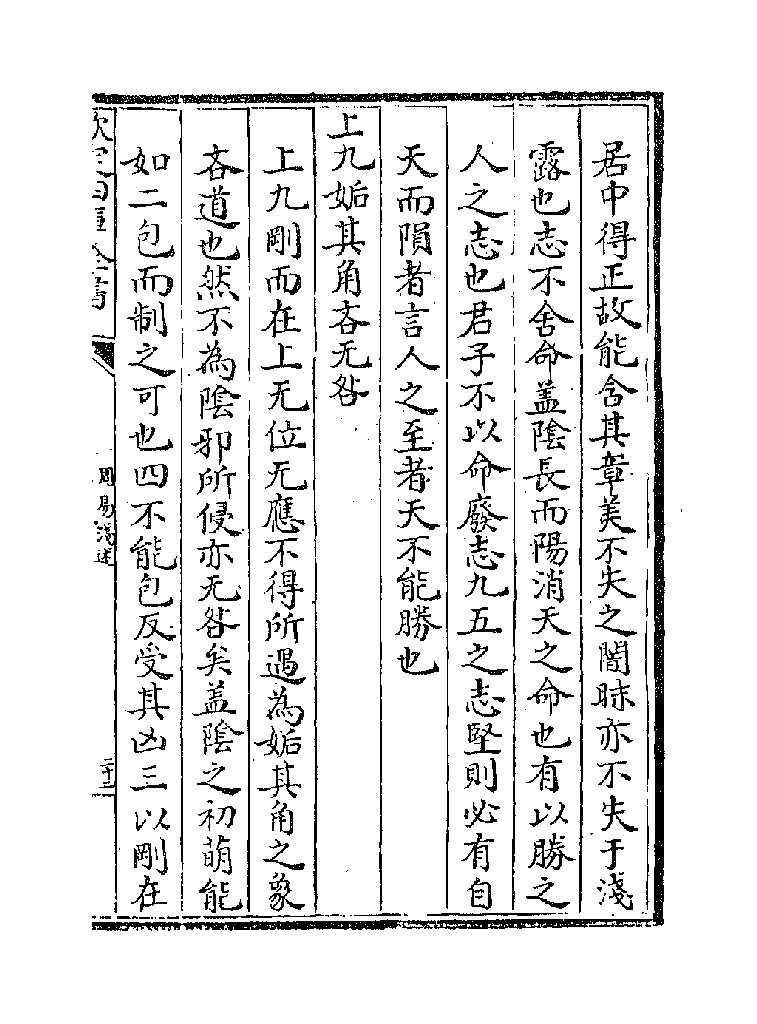 居中得正故能含其章美不失之闇昧亦不失于淺
露也志不舍命蓋陰長而陽消天之命也有以勝之
人之志也君子不以命廢志九五之志堅則必有自
天而隕者言人之至者天不能勝也
上九姤其角吝无咎
上九剛而在上无位无應不得所遇為姤其角之象
吝道也然不為陰邪所侵亦无咎矣蓋陰之初萌能
如二包而制之可也四不能包反受其凶三以剛在
欽定四庫全書
周易淺述
二十三